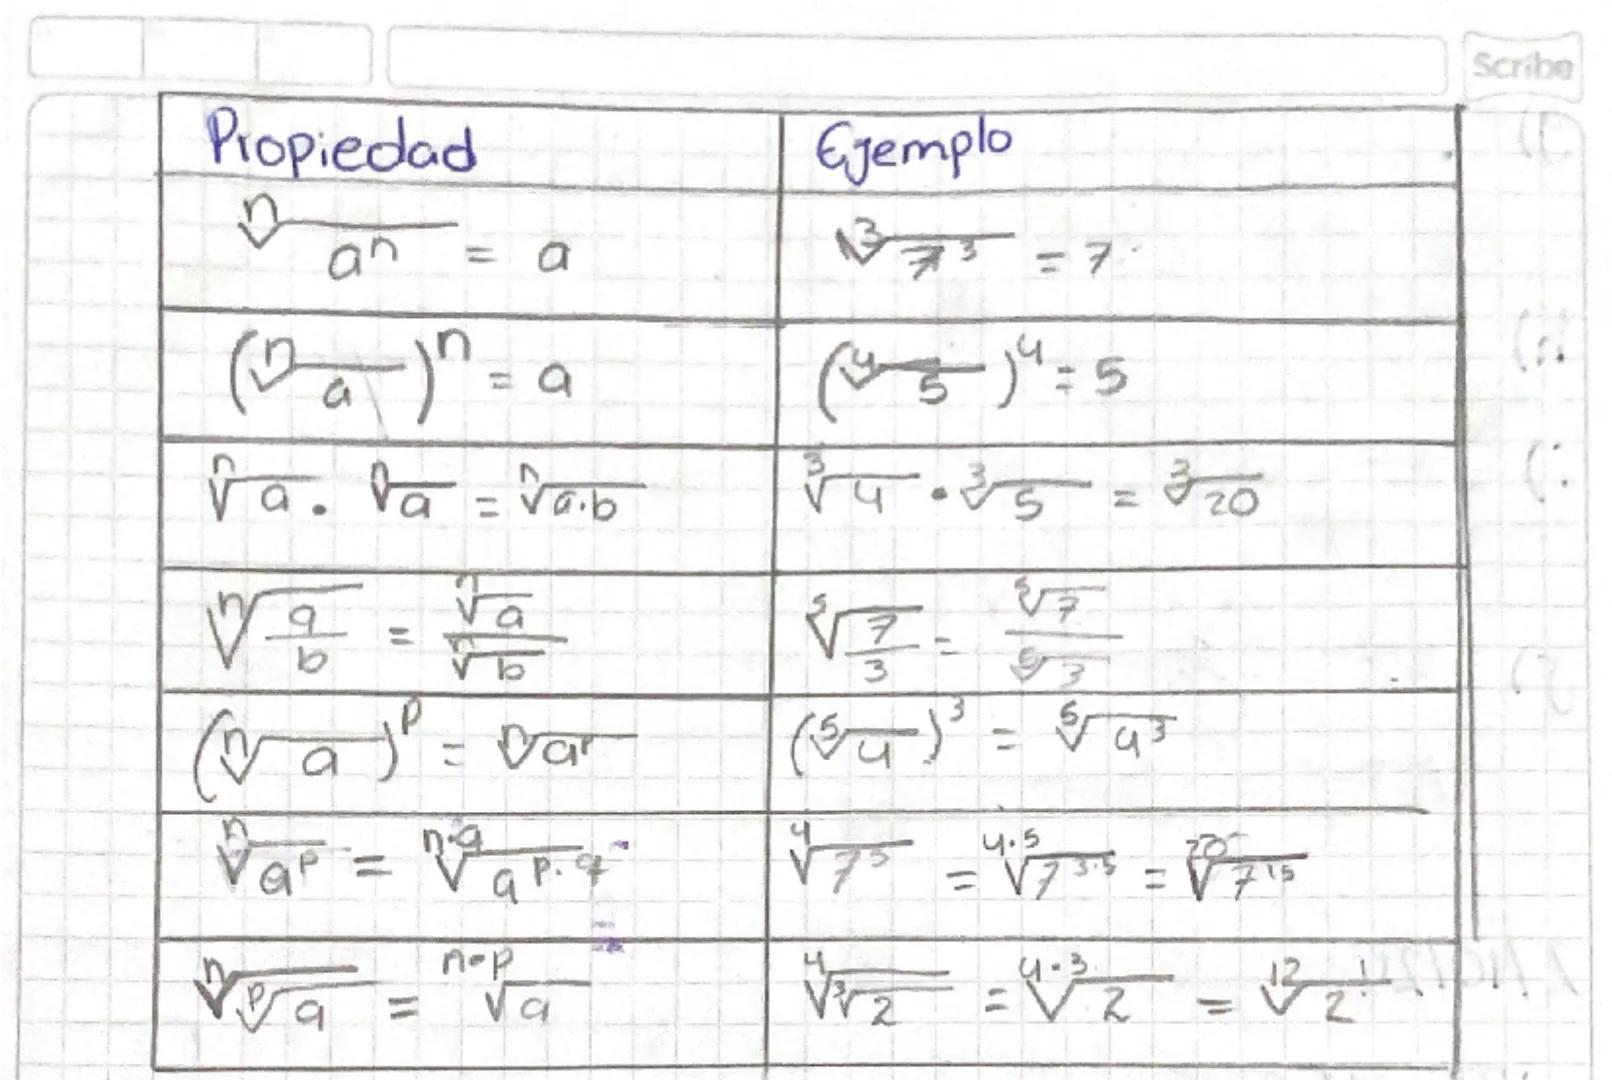 Scribe
Propiedad Ejemplo
ⁿ√aⁿ = a ³√7³ = 7
(ⁿ√a)ⁿ = a (⁴√5)⁴ = 5
ⁿ√a · ⁿ√a = ⁿ√a·b ³√4 · ³√5 = ³√20
ⁿ√(a/b) = ⁿ√a / ⁿ√b ⁵√(7/3) = ⁵√7 / ⁵√3
(ⁿ√a)ᵖ = ⁿ√aᵖ (⁵√4)³ = ⁵√4³
ⁿ√aᵖ = ⁿ·q√a^p·q ⁴√7³ = ⁴·⁵√7^3·5 = ²⁰√7¹⁵
ⁿ√ᵖ√a = ⁿ·ᵖ√a ⁴√³√2 = ⁴·³√2 = ¹²√2